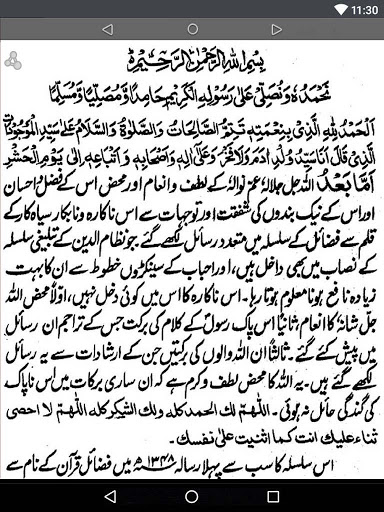 11:30
بسم اللہ الرحمٰن الرحیم ۝
نحمدہ و نصلی علی رسولہ الکریم حامدا و مصلیا و مسلما
الحمد للہ الذی بنعمتہ تتم الصالحات والصلوۃ والسلام علی سید الموجودات
الذی قال انا سید ولد ادم ولا فخر وعلی الہ واصحابہ واتباعہ الی یوم الحشر
اما بعد اللہ جل جلالہ وعم نوالہ کے لطف و انعام اور محض اس کے فضل و احسان
اور اس کے نیک بندوں کی شفقت اور توجہات سے اس ناکارہ و نابکار سیاہ کار کے
قلم سے فضائل کے سلسلہ میں متعدد رسائل لکھے گئے جو نظام الدین کے تبلیغی سلسلہ
کے نصاب میں بھی داخل ہیں، اور احباب کے سینکڑوں خطوط سے ان کا بہت
زیادہ نافع ہونا معلوم ہوتا رہا۔ اس ناکارہ کا اس میں کوئی دخل نہیں، اولاً محض اللہ
جل شانہ کا انعام ثانیاً اس پاک رسولؐ کے کلام کی برکت جس کے تراجم ان رسائل
میں پیش کئے گئے۔ ثالثاً ان اللہ والوں کی برکتیں جن کے ارشادات سے یہ رسائل
لکھے گئے ہیں۔ یہ اللہ کا محض لطف و کرم ہے کہ ان ساری برکات میں اس ناپاک
کی گندگی حائل نہ ہوئی۔ اللھم لک الحمد کلہ ولک الشکر کلہ اللھم لا احصی
ثناء علیک انت کما اثنیت علی نفسک۔
اس سلسلہ کا سب سے پہلا رسالہ ۱۳۴۸ھ میں فضائل قرآن کے نام سے